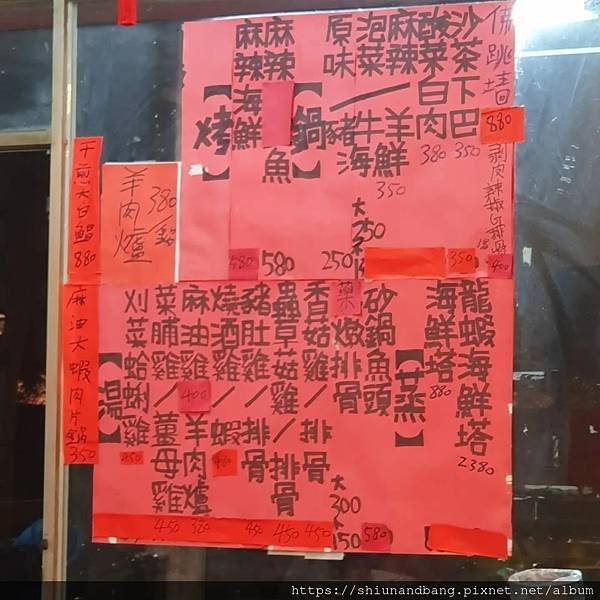 佛跳墻 880
沙茶下巴 350
酸菜白肉 380
麻辣
泡菜
原味
羊
牛
豬
海鮮
350
大 350
250
【鍋】
麻辣
魚 580
麻辣海鮮 580
【烤】
羊肉爐 380/鍋
干煎大白鯧 880
龍蝦海鮮塔 2380
海鮮塔 880
【蒸】
砂鍋魚頭 580
藥燉排骨 大300 小150
香菇雞/排骨 450
蟲草菇雞/排骨 450
豬肚雞/排骨 450
燒酒雞/蝦
麻油雞 400
羊肉爐 380
菜脯雞/薑母雞 450
刈菜蛤蜊雞 450
【湯】
麻油大蝦肉片鍋 350
https://shiunandbang.pixnet.net/album